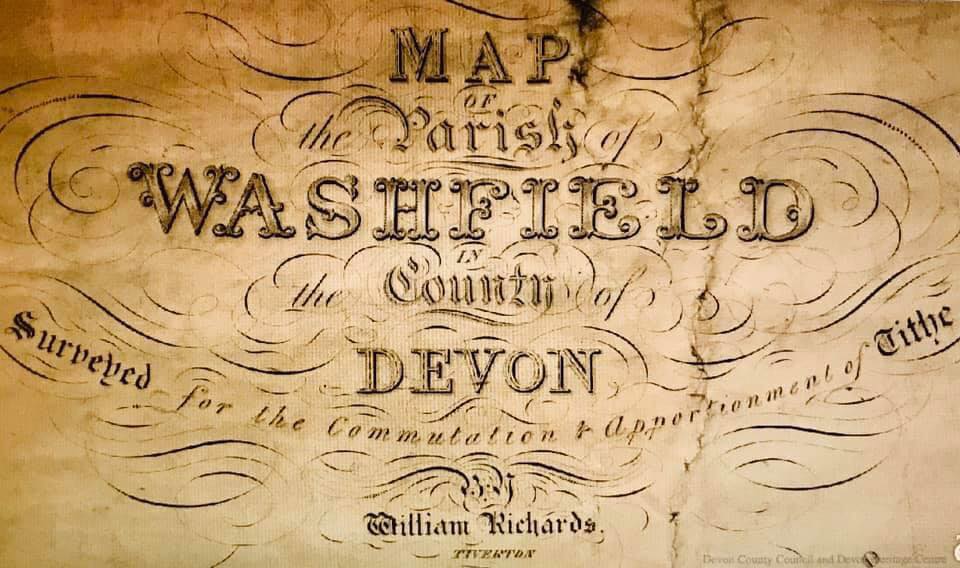 MAP
OF
the Parish of
WASHFIELD
IN
the County of
DEVON
Surveyed for the Commutation & Apportionment of Tithe
BY
William Richards.
TIVERTON
Devon County Council and Devon Heritage Centre